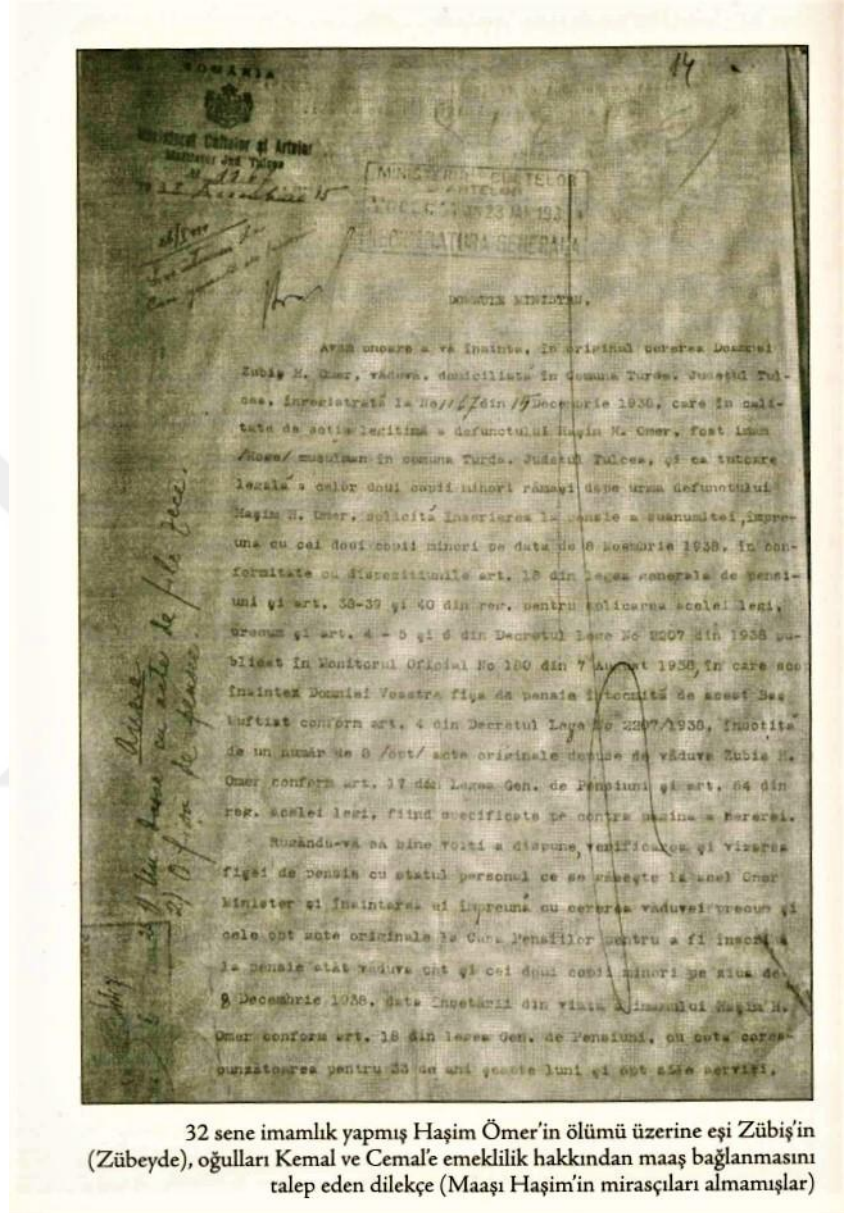 14
ROMANIA
Ministerul Cultelor şi Artelor
Jud. Tulcea
MINISTERUL CULTELOR
ARTELOR
REGISTRATURA GENERALA
DOMNULE MINISTRU,
Avam onoare a vă înainta, în original cererea Doamnei
Zubiş H. Omer, văduva, domiciliată în Comuna Turda, Judeţul Tul-
cea, înregistrată la No 1167 din 19 Decembrie 1938, care în cali-
tate de soţie legitimă a defunctului Haşim H. Omer, fost imam
/Hoge/ musulman în comuna Turda, Judetul Tulcea, şi ca tutoare
legală a celor doui copii minori rămaşi depe urma defunctului
Haşim H. Omer, solicită înscrierea la pensie a susnumitei, împre-
una cu cei doui copii minori pe data de 8 1938, în con-
formitate cu dispoziţiunile art. 18 din legea generala de pensi-
uni şi art. 38-39 şi 40 din reg. pentru aplicarea acelei legi,
precum şi art. 4 - 5 şi 6 din Decretul Lege No 2207 din 1938 pu-
blicat în Monitorul Oficial No 180 din 7 August 1938, în care scop
înaintez Domniei Voastra fişa de pensie întocmită de acest Baş
Muftiat conform art. 4 din Decretul Lege No 2207/1938, însoţită
de un număr de 8 /opt/ acte originale depuse de văduva Zubiş H.
Omer conform art. 17 din Legea Gen. de Pensiuni şi art. 64 din
reg. acelei legi, fiind specificate pe contra pagina a cererei.
Rugându-vă să bine voiţi a dispune, verificarea şi vizarea
fişei de pensie cu statul personal ce se găseşte la acel Onor
Minister şi înaintarea ei împreună cu cererea văduvei precum şi
cele opt acte originale la Casa Pensiilor pentru a fi înscri
la pensie atât văduva cât şi cei doui copii minori pe ziua de
8 Decembrie 1938, data încetării din viaţă a imamului Haşim H.
Omer conform art. 18 din legea Gen. de Pensiuni, cu cota cores-
punzătoarea pentru 33 de ani şeaşte luni şi opt zile servici.
Anexe
1) Un dosar cu acte de file zece.
2) O fişa de pensie.
32 sene imamlık yapmış Haşim Ömer'in ölümü üzerine eşi Zübiş'in
(Zübeyde), oğulları Kemal ve Cemal'e emeklilik hakkından maaş bağlanmasını
talep eden dilekçe (Maaşı Haşim'in mirasçıları almamışlar)